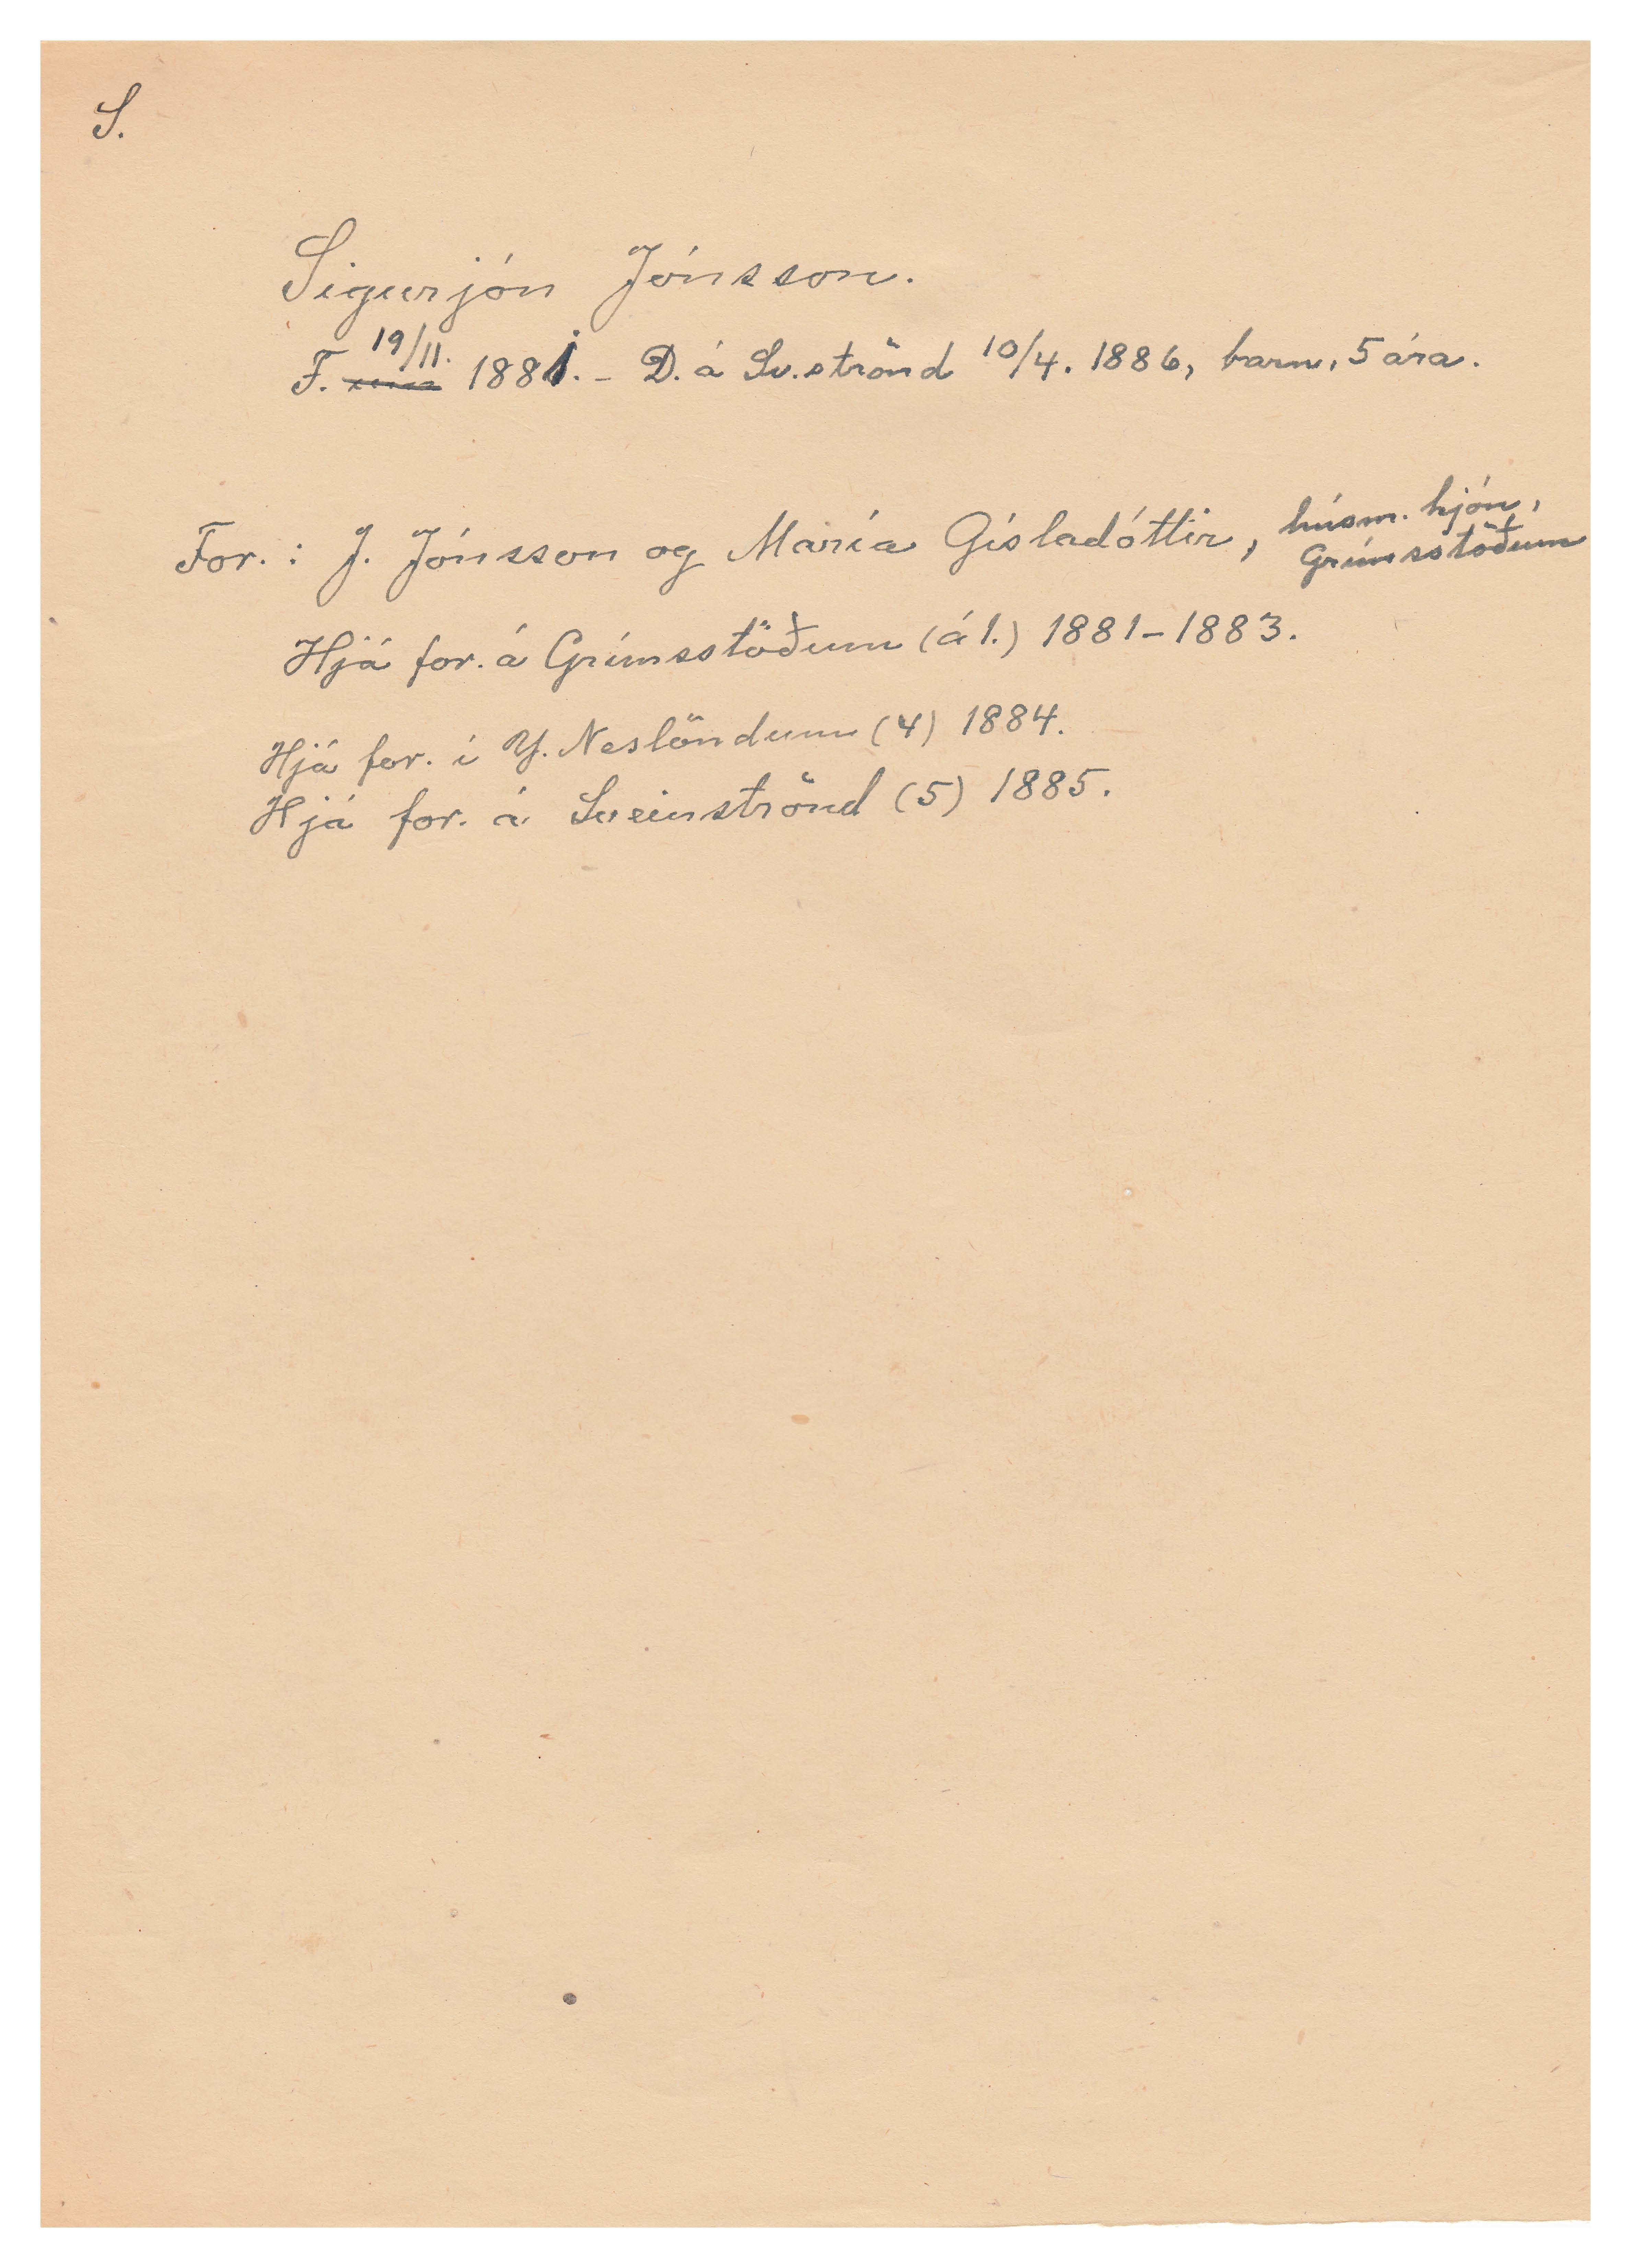 S.
Sigurjón Jónsson.
F. 19/11. 1881. - D. á Sv.strönd 10/4. 1886, barn, 5 ára.
For.: J. Jónsson og María Gísladóttir, húsm. hjón,
Grímsstöðum
Hjá for. á Grímsstöðum (á 1.) 1881-1883.
Hjá for. í Y. Neslöndum (4) 1884.
Hjá for. á Sveinströnd (5) 1885.